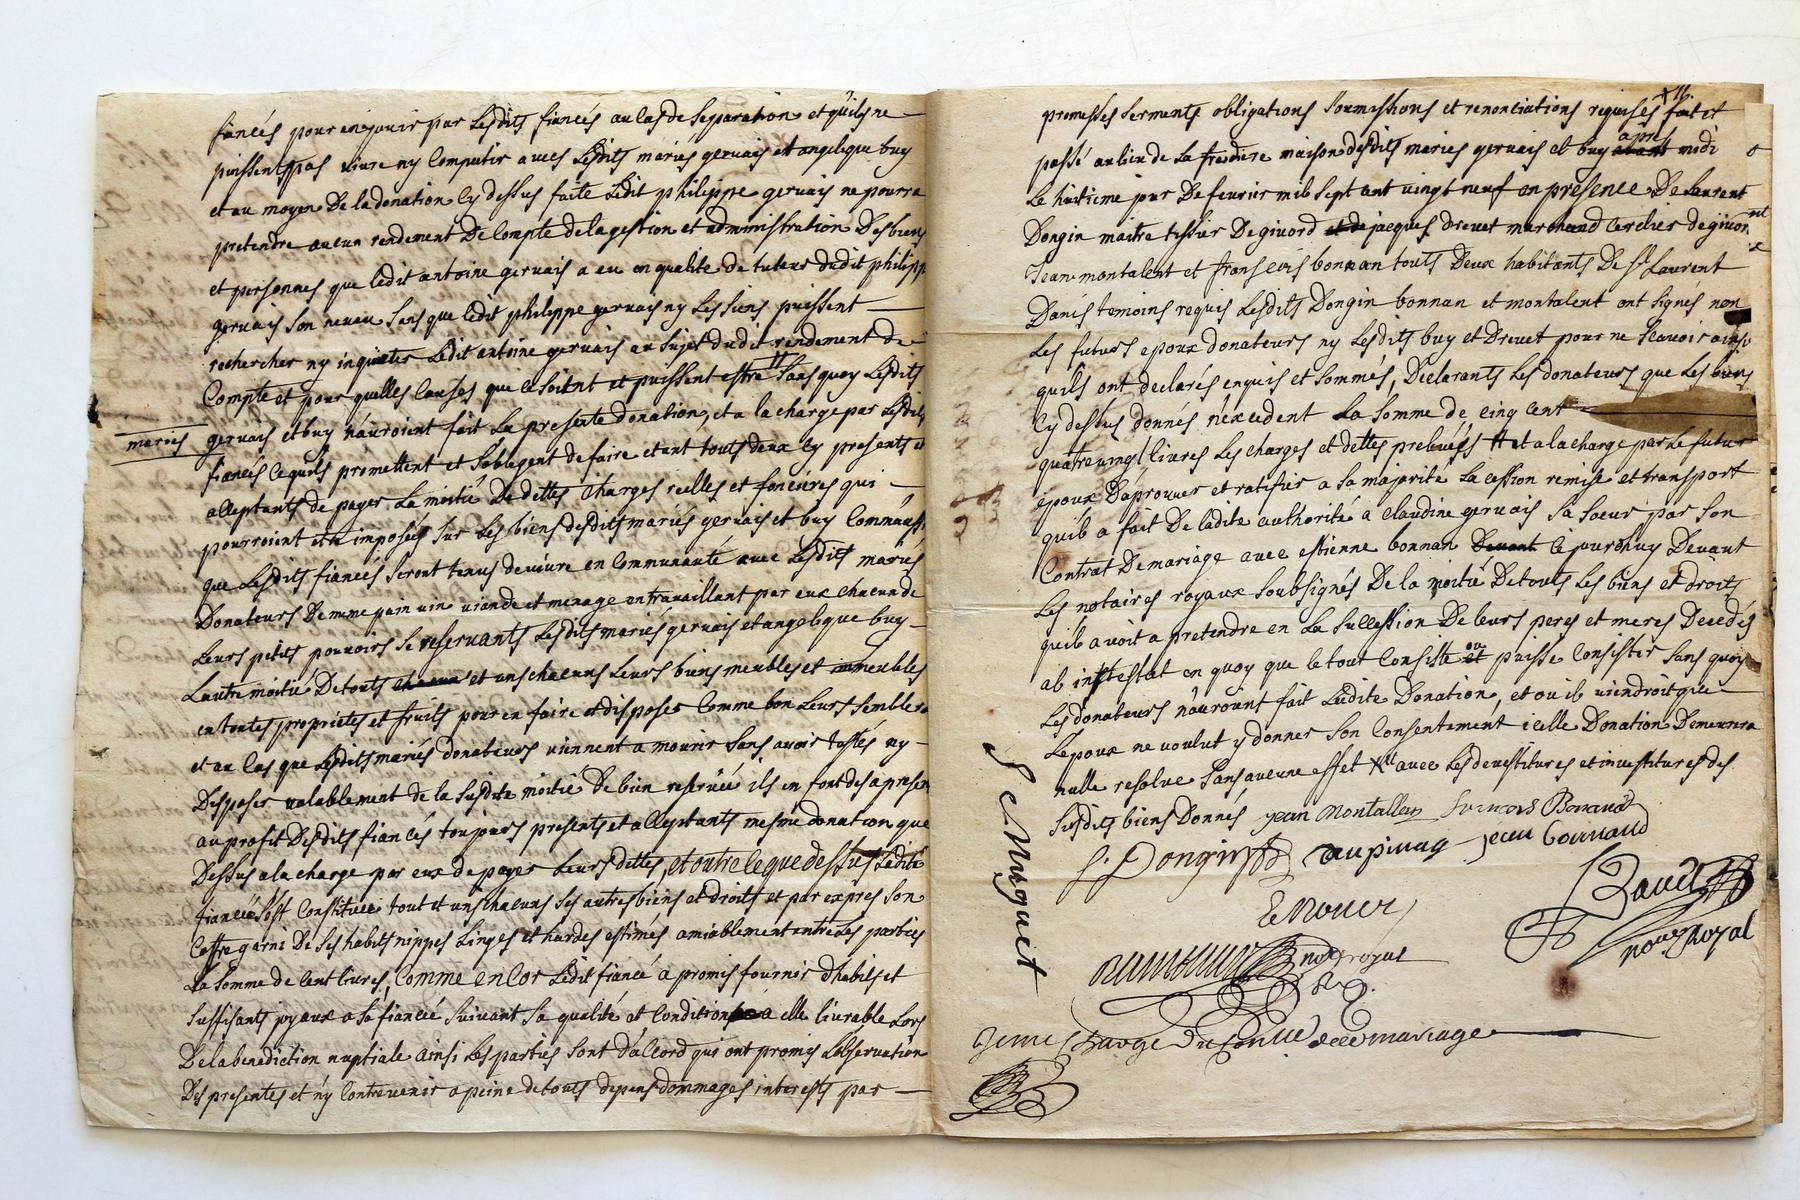 fiancés pour en jouir par lesdits fiancés au cas de separation et quils ne
puissent pas vivre ny compatir avecs lesdits mariés gervais et angelique buy
et au moyen De la donation cy dessus faite ledit philippe gervais ne pourra
pretendre aucun rendement De compte de la gestion et administration Des biens
et personnes que ledit antoine gervais a eu en qualité de tuteur dudit philipp
gervais son neveu sans que ledit philippe gervais ny les siens puissent
rechercher ny inquieter ledit antoine gervais au sujet dudit rendement de
Compte et pour quelles causes que ce soient et puissent estre sans quoy lesdits
mariés
gervais et buy n'auroient fait la presente donation, et a la charge par lesdits
fiancés ce quils promettent et soblegent de faire etant touts deux cy presents et
acceptants de payer la moitié De dettes charges reelles et fonciéres qui
pourroient etre imposées sur les biens desdits mariés gervais et buy Comm'aussy
que lesdits fiancés seront tenus de vivre en communauté avec lesdits mariés
Donateurs De meme pain vin viande et menage en travaillant par eux chacun de
leurs petits pouvoirs se reservants lesdits mariés gervais et angelique buy
l'autre moitié De touts et uns chacuns leurs biens meubles et immeubles
en toutes proprietes et fruits pour en faire et disposer comme bon leurs semblera
et au cas que lesdits mariés donateurs viennent a mourir sans avoir testés ny
Disposer valablement de la susdite moitié De bien reservée ils en font des a present
au profit Desdits fiancés toujours presents et acceptants mesme donation que
Dessus a la charge par eux de payer leurs dettes, et outre ce que dessus Ladite
fiancée s'est Constituée tout et uns chacuns ses autres biens et droits et par expres son
coffre garni De ses habits nippes linges et hardes estimés amiablement entre les parties
la somme de cent livres, Comme encor ledit fiancé a promis fournir d'habits et
suffisants joyaux a sa fiancée suivant sa qualité et condition a elle livrable lors
De la benediction nuptiale ainsi les parties sont d'accord qui ont promis l'observation
Des presentes et n'y contrevenir a peine de touts depens dommages interests par
promesses serments obligations soumissions et renonciations requises fait et
passé au lieu de la maison desdits mariés gervais et buy avant apres midi
le huitieme jour De fevrier mil sept cent vingt neuf en presence De Laurent
Dongin maitre tissier De givord et de jacques Drevet marchand cerclier de givor
jean montalent et fransois bonnan touts Deux habitants De St Laurent
Danis temoins requis lesdits Dongin bonnan et montalent ont signés non
les futurs epoux donateurs ny lesdits buy et Drevet pour ne scavoir ainsi
quils ont declarés enquis et sommés, Declarants les donateurs que les biens
cy dessus donnés n'excedent la somme de cinq cent
quatrevingt livres les charges et dettes prelevées et a la charge par le futur
epoux D'aprouver et ratifier a sa majorité la cession remise et transport
quil a fait De ladite authorité a claudine gervais sa soeur par son
Contrat De mariage avec estienne bonnan Devant ce jourdhuy Devant
les notaires royaux soubsignés De la moitié De touts les biens et droits
quil avoit a pretendre en la succession De leurs peres et meres Decedés
ab intestat en quoy que le tout consiste et ou puisse consister sans quoy
les donateurs n'auroient fait ladite Donation, et ou il viendroit que
l'epoux ne voulut y donner son consentement icelle Donation Demeurera
nulle resolue sans aucune effet avec les devestitures et investitures des
susdits biens Donnés jean Montallan
L Dongin
not royal
Nottr Royal